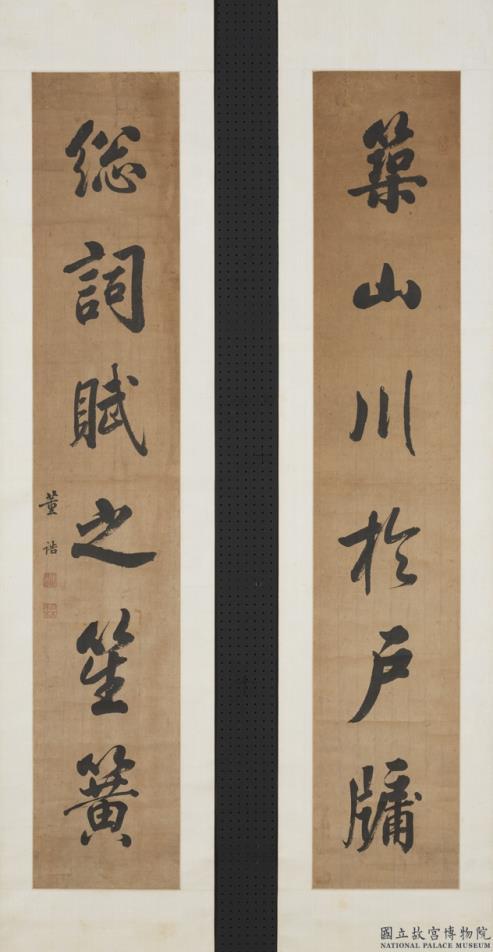 築山川於戶牖
総詞賦之笙簧
董誥
國立故宮博物院
NATIONAL PALACE MUSEUM